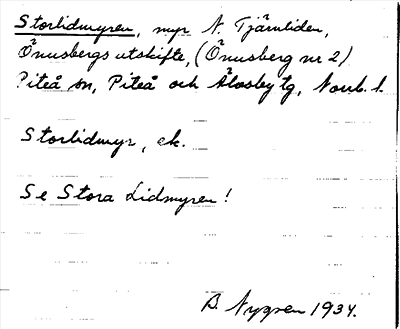 Storlidmyren, myr N. Tjärnliden,
Önusbergs utskifte, (Önusberg nr 2)
Piteå sn, Piteå och Älvsby tg, Norrb. l.
Storlidmyr, ek.
Se Stora Lidmyren!
B. Nygren 1934.